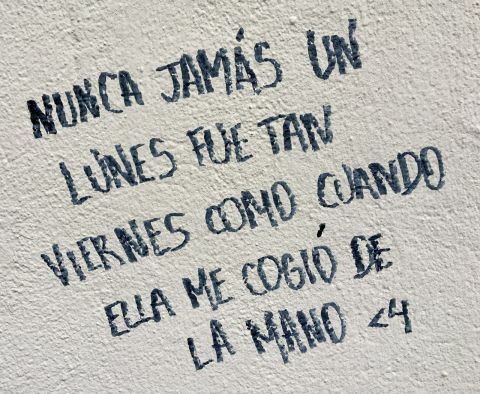 NUNCA JAMÁS UN
LUNES FUE TAN
VIERNES COMO CUANDO
ELLA ME COGIÓ DE
LA MANO <4